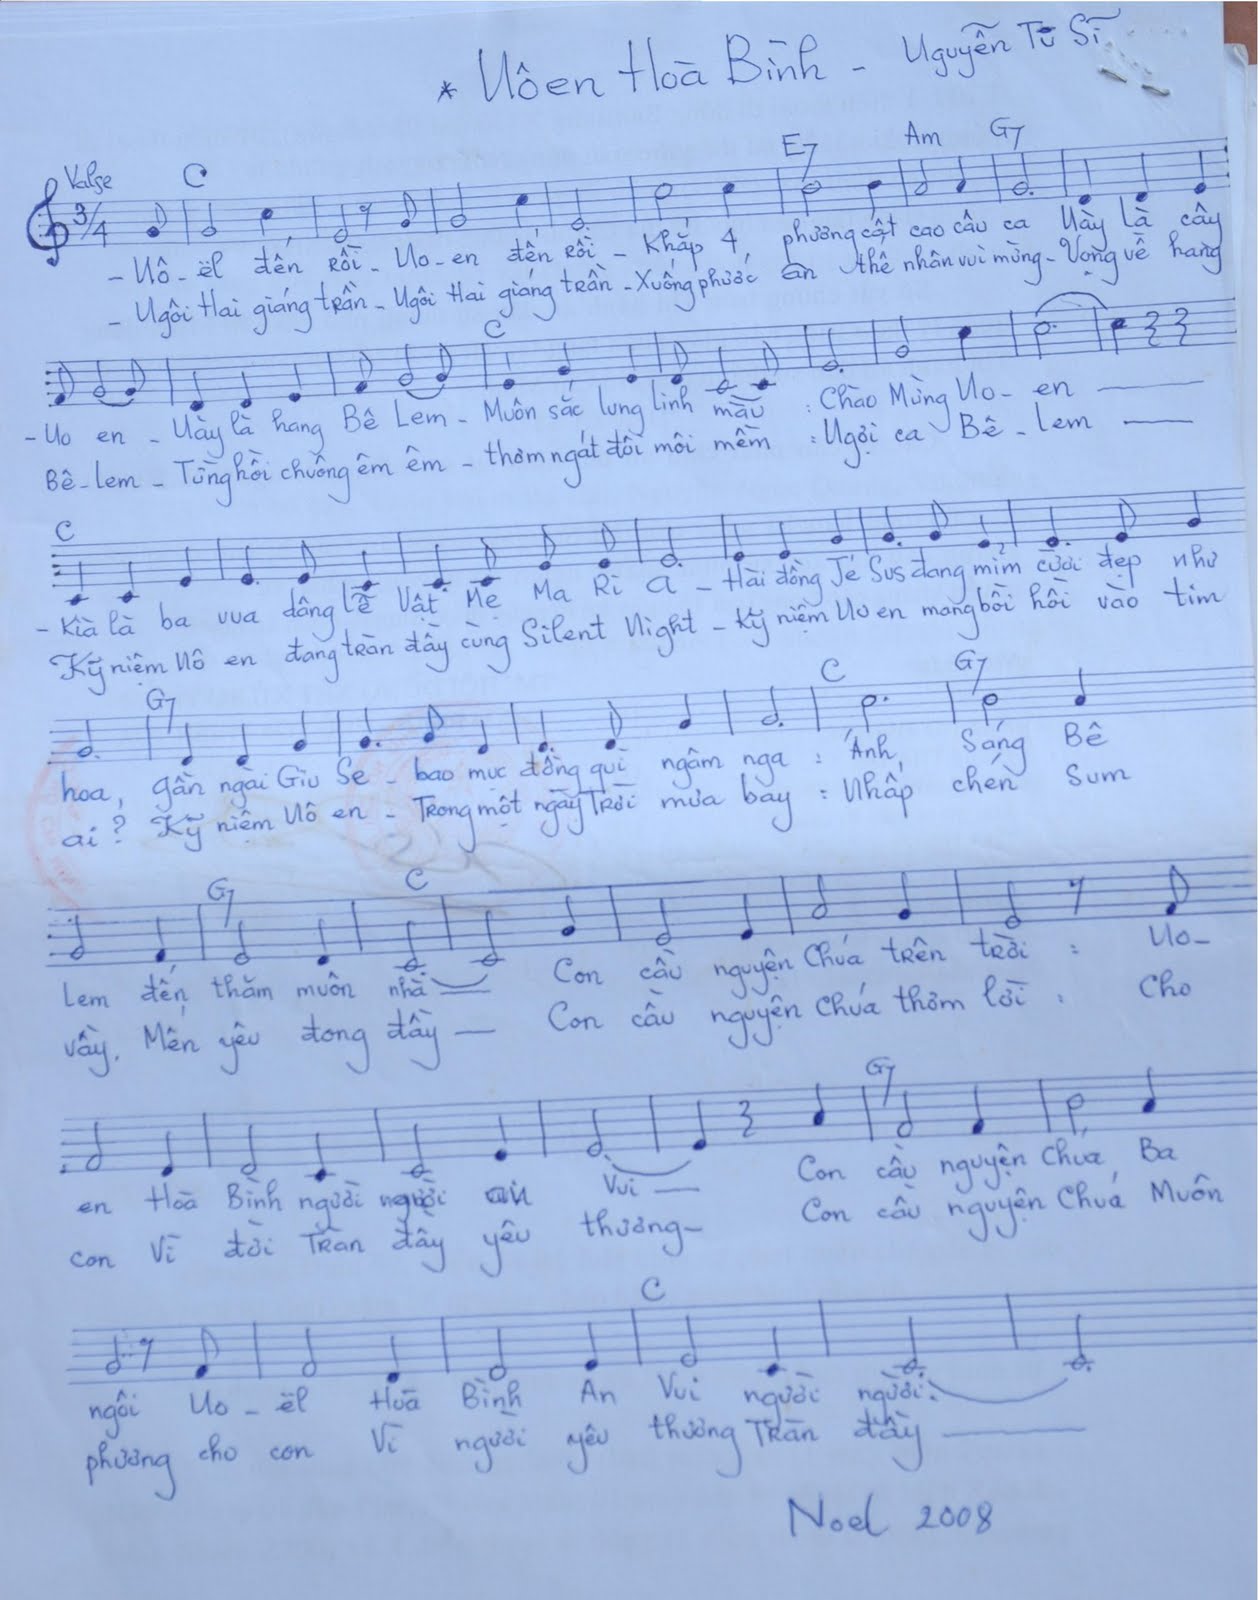 * Nôen Hoà Bình - Nguyễn Tú Sĩ
Valse C E7 Am G7
3/4
- Nô - ël đến rồi - No - en đến rồi - Khắp 4 phương cất cao câu ca Này là cây
- Ngôi Hai giáng trần - Ngôi Hai giáng trần - Xuống phước ân thế nhân vui mừng - Vọng về hang
C
- No en - Này là hang Bê Lem - Muôn sắc lung linh mầu : Chào Mừng No - en
Bê - lem - Từng hồi chuông êm êm - thơm ngát đôi môi mềm : Ngợi ca Bê - lem
C
- Kià là ba vua dâng lễ Vật Mẹ Ma Ri a - Hài đồng Jé Sus đang mỉm cười đẹp như
Kỹ niệm Nô en đang tràn đầy cùng Silent Night - Kỹ niệm No en mang bồi hồi vào tim
G7 C G7
hoa, gần ngài Giu Se - bao mục đồng quì ngâm nga : Ánh, Sáng Bê
ai ? Kỹ niệm Nô en - Trong một ngày Trời mưa bay : Nhấp chén Sum
G7 C
Lem đến thăm muôn nhà Con cầu nguyện Chúa trên trời : No -
vầy, Mến yêu đong đầy Con cầu nguyện Chúa thơm lời : Cho
G7
en Hoà Bình người người an Vui Con cầu nguyện Chúa, Ba
con Vì đời Tràn đầy yêu thương - Con cầu nguyện Chúa Muôn
C
ngôi No - ël Hoà Bình An Vui người người.
phương cho con Vì người yêu thương Tràn đầy
Noel 2008